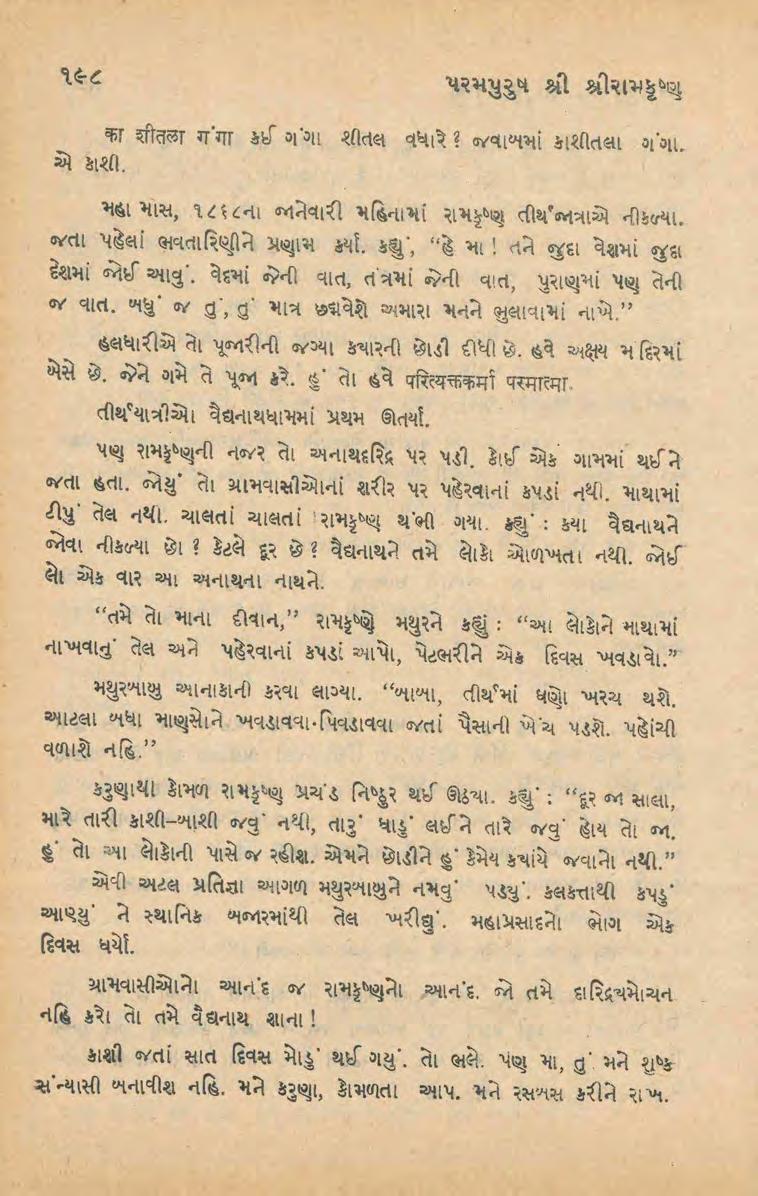 ૧૯૮
પરમપુરુષ શ્રી શ્રીરામકૃષ્ણ
का शीतला गंगा કઈ ગંગા શીતલ વધારે? જવાબમાં કાશીતલા ગંગા.
એ કાશી.
મહા માસ, ૧૮૬૮ના જાનેવારી મહિનામાં રામકૃષ્ણ તીર્થજાત્રાએ નીકળ્યા.
જતા પહેલાં ભવતારિણીને પ્રણામ કર્યાં. કહ્યું, “હે મા! તને જુદા વેશમાં જુદા
દેશમાં જોઈ આવું. વેદમાં જેની વાત, તંત્રમાં જેની વાત, પુરાણમાં પણ તેની
જ વાત. બધું જ તું, તું માત્ર છદ્મવેશે અમારા મનને ભુલાવામાં નાખે.”
હલધારીએ તો પૂજારીની જગ્યા ક્યારની છોડી દીધી છે. હવે અક્ષય મંદિરમાં
બેસે છે. જેને ગમે તે પૂજા કરે. હું તો હવે परित्यक्तकर्मा परमात्मा.
તીર્થયાત્રીઓ વૈદ્યનાથધામમાં પ્રથમ ઊતર્યાં.
પણ રામકૃષ્ણની નજર તો અનાથદરિદ્ર પર પડી. કોઈ એક ગામમાં થઈને
જતા હતા. જોયું તો ગ્રામવાસીઓનાં શરીર પર પહેરવાનાં કપડાં નથી. માથામાં
ટીપું તેલ નથી. ચાલતાં ચાલતાં રામકૃષ્ણ થંભી ગયા. કહ્યું : કયા વૈદ્યનાથને
જોવા નીકળ્યા છો ? કેટલે દૂર છે ? વૈદ્યનાથને તમે લોકો ઓળખતા નથી. જોઈ
લો એક વાર આ અનાથના નાથને.
“તમે તો માના દીવાન,” રામકૃષ્ણે મથુરને કહ્યું : “આ લોકોને માથામાં
નાખવાનું તેલ અને પહેરવાનાં કપડાં આપો, પેટભરીને એક દિવસ ખવડાવો.”
મથુરબાબુ આનાકાની કરવા લાગ્યા. “બાબા, તીર્થમાં ઘણો ખરચ થશે.
આટલા બધા માણસોને ખવડાવવા-પિવડાવવા જતાં પૈસાની ખેંચ પડશે. પહોંચી
વળાશે નહિ.”
કરુણાથી કોમળ રામકૃષ્ણ પ્રચંડ નિષ્ઠુર થઈ ઊઠ્યા. કહ્યું : “દૂર જા સાલા,
મારે તારી કાશી–બાશી જવું નથી, તારું ધાડું લઈને તારે જવું હોય તો જા.
હું તો આ લોકોની પાસે જ રહીશ. એમને છોડીને હું કેમેય કયાંયે જવાનો નથી.”
એવી અટલ પ્રતિજ્ઞા આગળ મથુરબાબુને નમવું પડયું. કલકત્તાથી કપડું
આણ્યું ને સ્થાનિક બજારમાંથી તેલ ખરીદ્યું. મહાપ્રસાદનો ભોગ એક
દિવસ ધર્યો.
ગ્રામવાસીઓનો આનંદ જ રામકૃષ્ણનો આનંદ. જો તમે દારિદ્રયમોચન
નહિ કરો તો તમે વૈદ્યનાથ શાના !
કાશી જતાં સાત દિવસ મોડું થઈ ગયું. તો ભલે. પણ મા, તું મને શુષ્ક
સંન્યાસી બનાવીશ નહિ. મને કરુણા, કોમળતા આપ. મને રસબસ કરીને રાખ.